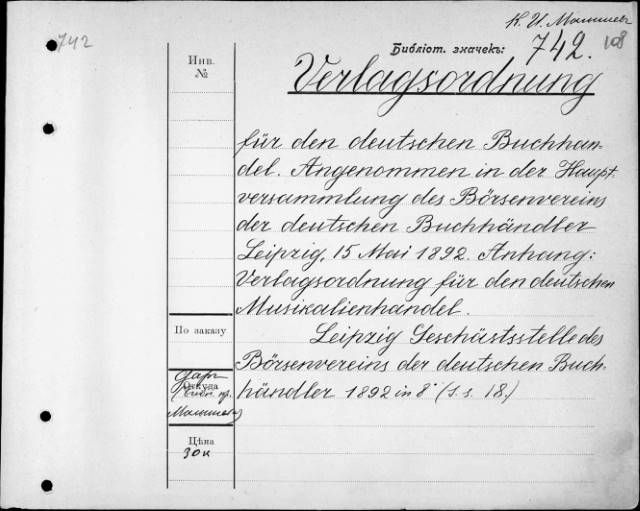 742
К. И. Машнев
108
Библіот. значекъ: 742.
Инв.
№
Verlagsordnung
für den deutschen Buchhan-
del. Angenommen in der Haupt
versammlung des Börsenvereins
der deutschen Buchhändler
Leipzig, 15 Mai 1892. Anhang:
Verlagsordnung für den deutschen
Musikalienhandel.
Leipzig Geschäftsstelle des
Börsenvereins der deutschen Buch-
händler 1892 in 8° (s. s. 18.)
По заказу
Даръ
Откуда
Цѣна
30к